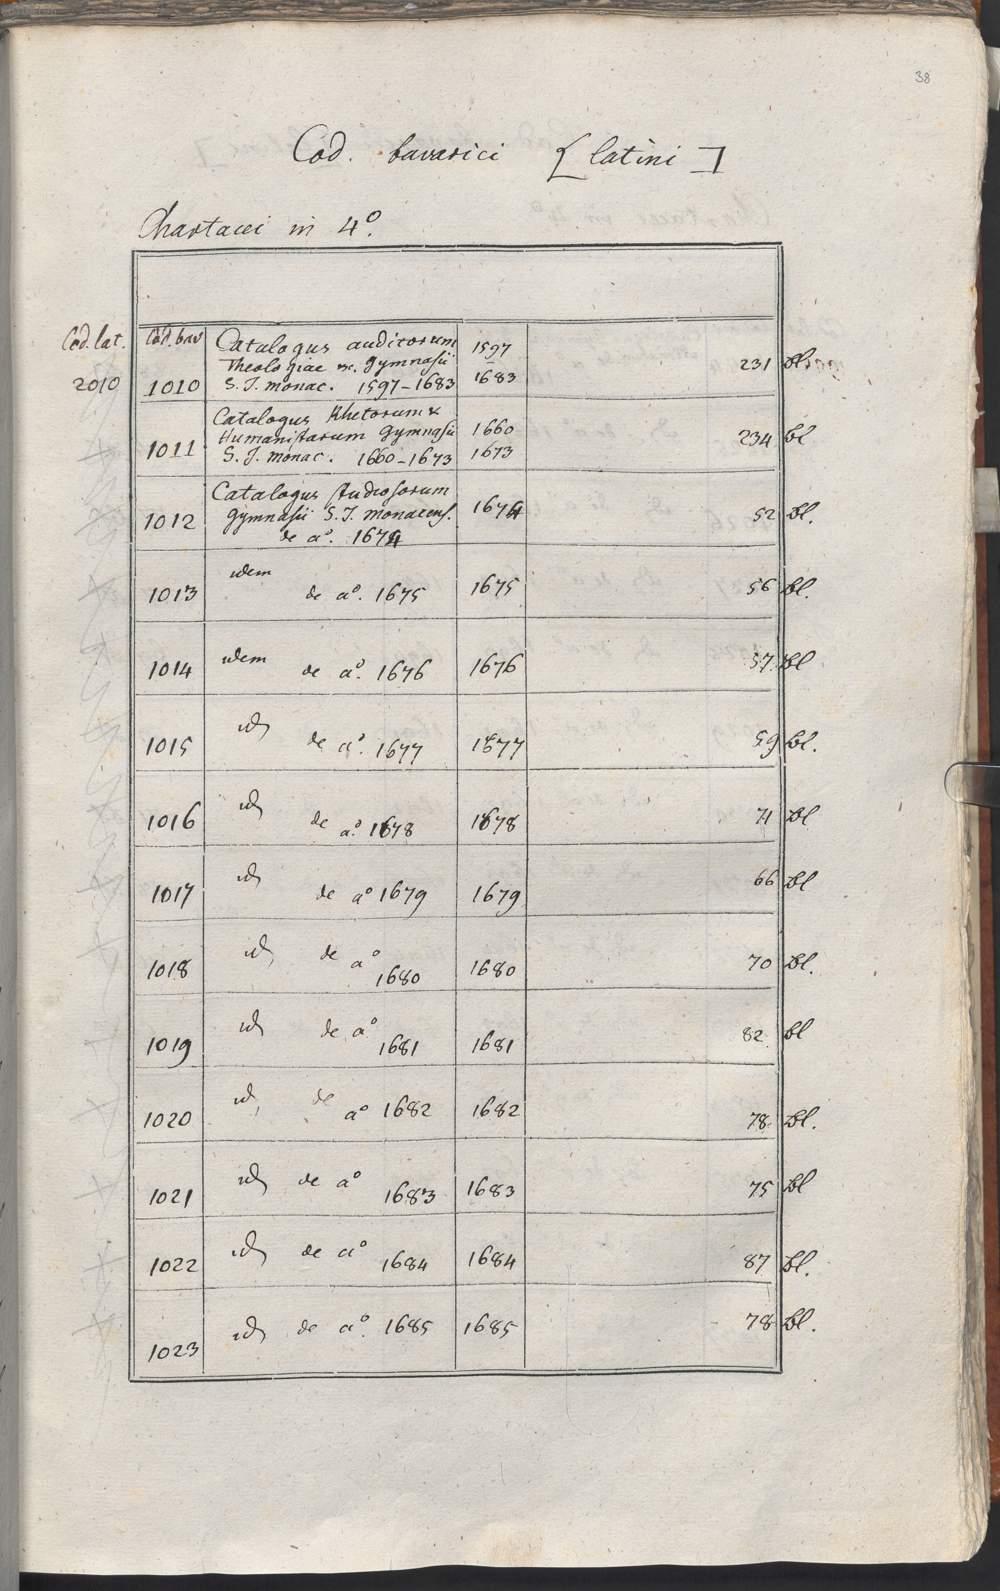 38
Cod. bavarici [latini]
Chartacei in 4º.
Cod. lat. Cod. bav Catalogus auditorum 1597
2010 1010 Theologiae &c. Gymnasii – 231 Bl
S. J. monac. 1597–1683 1683
Catalogus Rhetorum &
1011 Humanistarum Gymnasii 1660 234 bl
S. J. monac. 1660–1673 1673
Catalogus Studiosorum
1012 Gymnasii S. J. monacens. 1674 52 Bl.
de aº. 1674
1013 idem de aº. 1675 1675 56 Bl.
1014 idem de aº. 1676 1676 57. Bl
1015 id de aº. 1677 1677 59 Bl.
1016 id de aº. 1678 1678 71 Bl
1017 id de aº 1679 1679 66 Bl
1018 id, de aº 1680 1680 70 Bl.
1019 id de aº 1681 1681 82. bl
1020 id, de aº 1682 1682 78. Bl.
1021 id de aº 1683 1683 75 Bl
1022 id de aº 1684 1684 87 Bl.
1023 id de aº. 1685 1685 78 Bl.